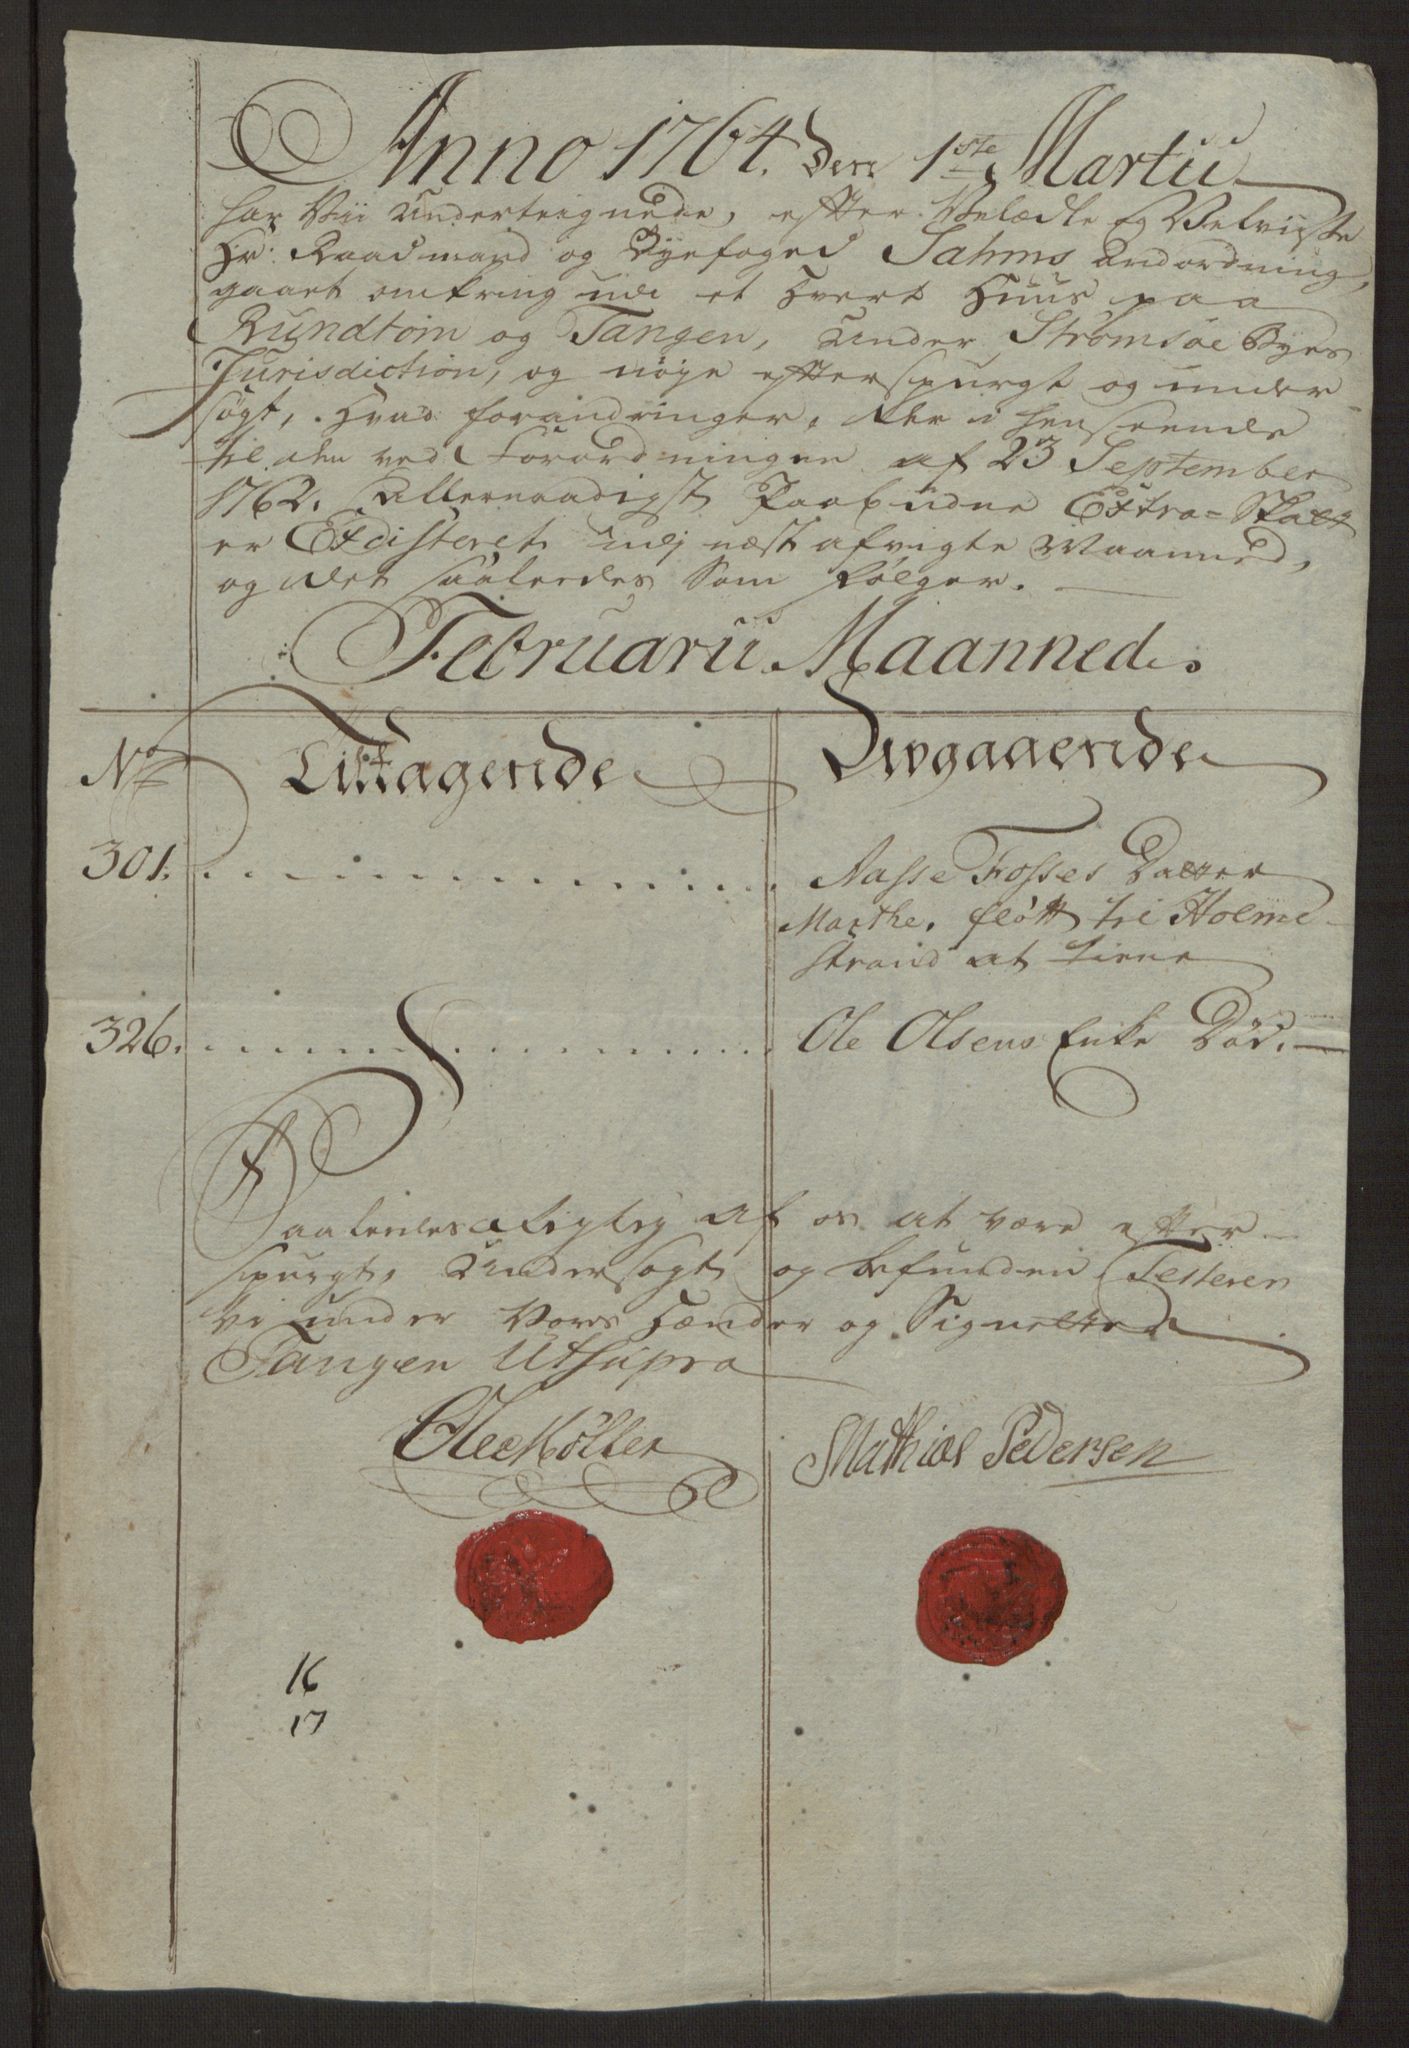 Anno 1764. Den 1ste Martii
har Vii underteignede, efter Velædle og Velviiste
Hr: Raadmand og Byefoged Sahms Andordning,
gaaet omkring udi et hvert Huus paa
Rundtom og Tangen, under Strømsøe Byes
Jurisdiction, og nøye efterspurgt og under
søgt, hvad forandringer, der i henseende
til den ved Forordningen af 23 September
1762. Allernaadigst Paabudne Extra=Skatt
er Exdisteret udj næst afvigte Maanned,
og det saaledes som følger.
Februarii Maanned.
No Tilltagende Avgaaende
301. Aasse Fosses Datter
Marthe, fløtt til Holme
strand at tiene
326. Ole Olsens Enke Død.
Saaledes Rigtig af os at være efter
spurgt, Undersøgt og befunden Testerer
vi under Vores Hænder og Signetter
Tangen Utsupra
Ole Møller Mathias Pedersen
16
17